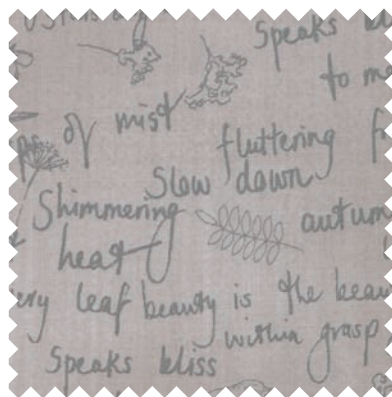 Speaks
to m
of mist
fluttering f
Slow down
Shimmering autum
heat
ery leaf beauty is the beau
within grasp
Speaks bliss